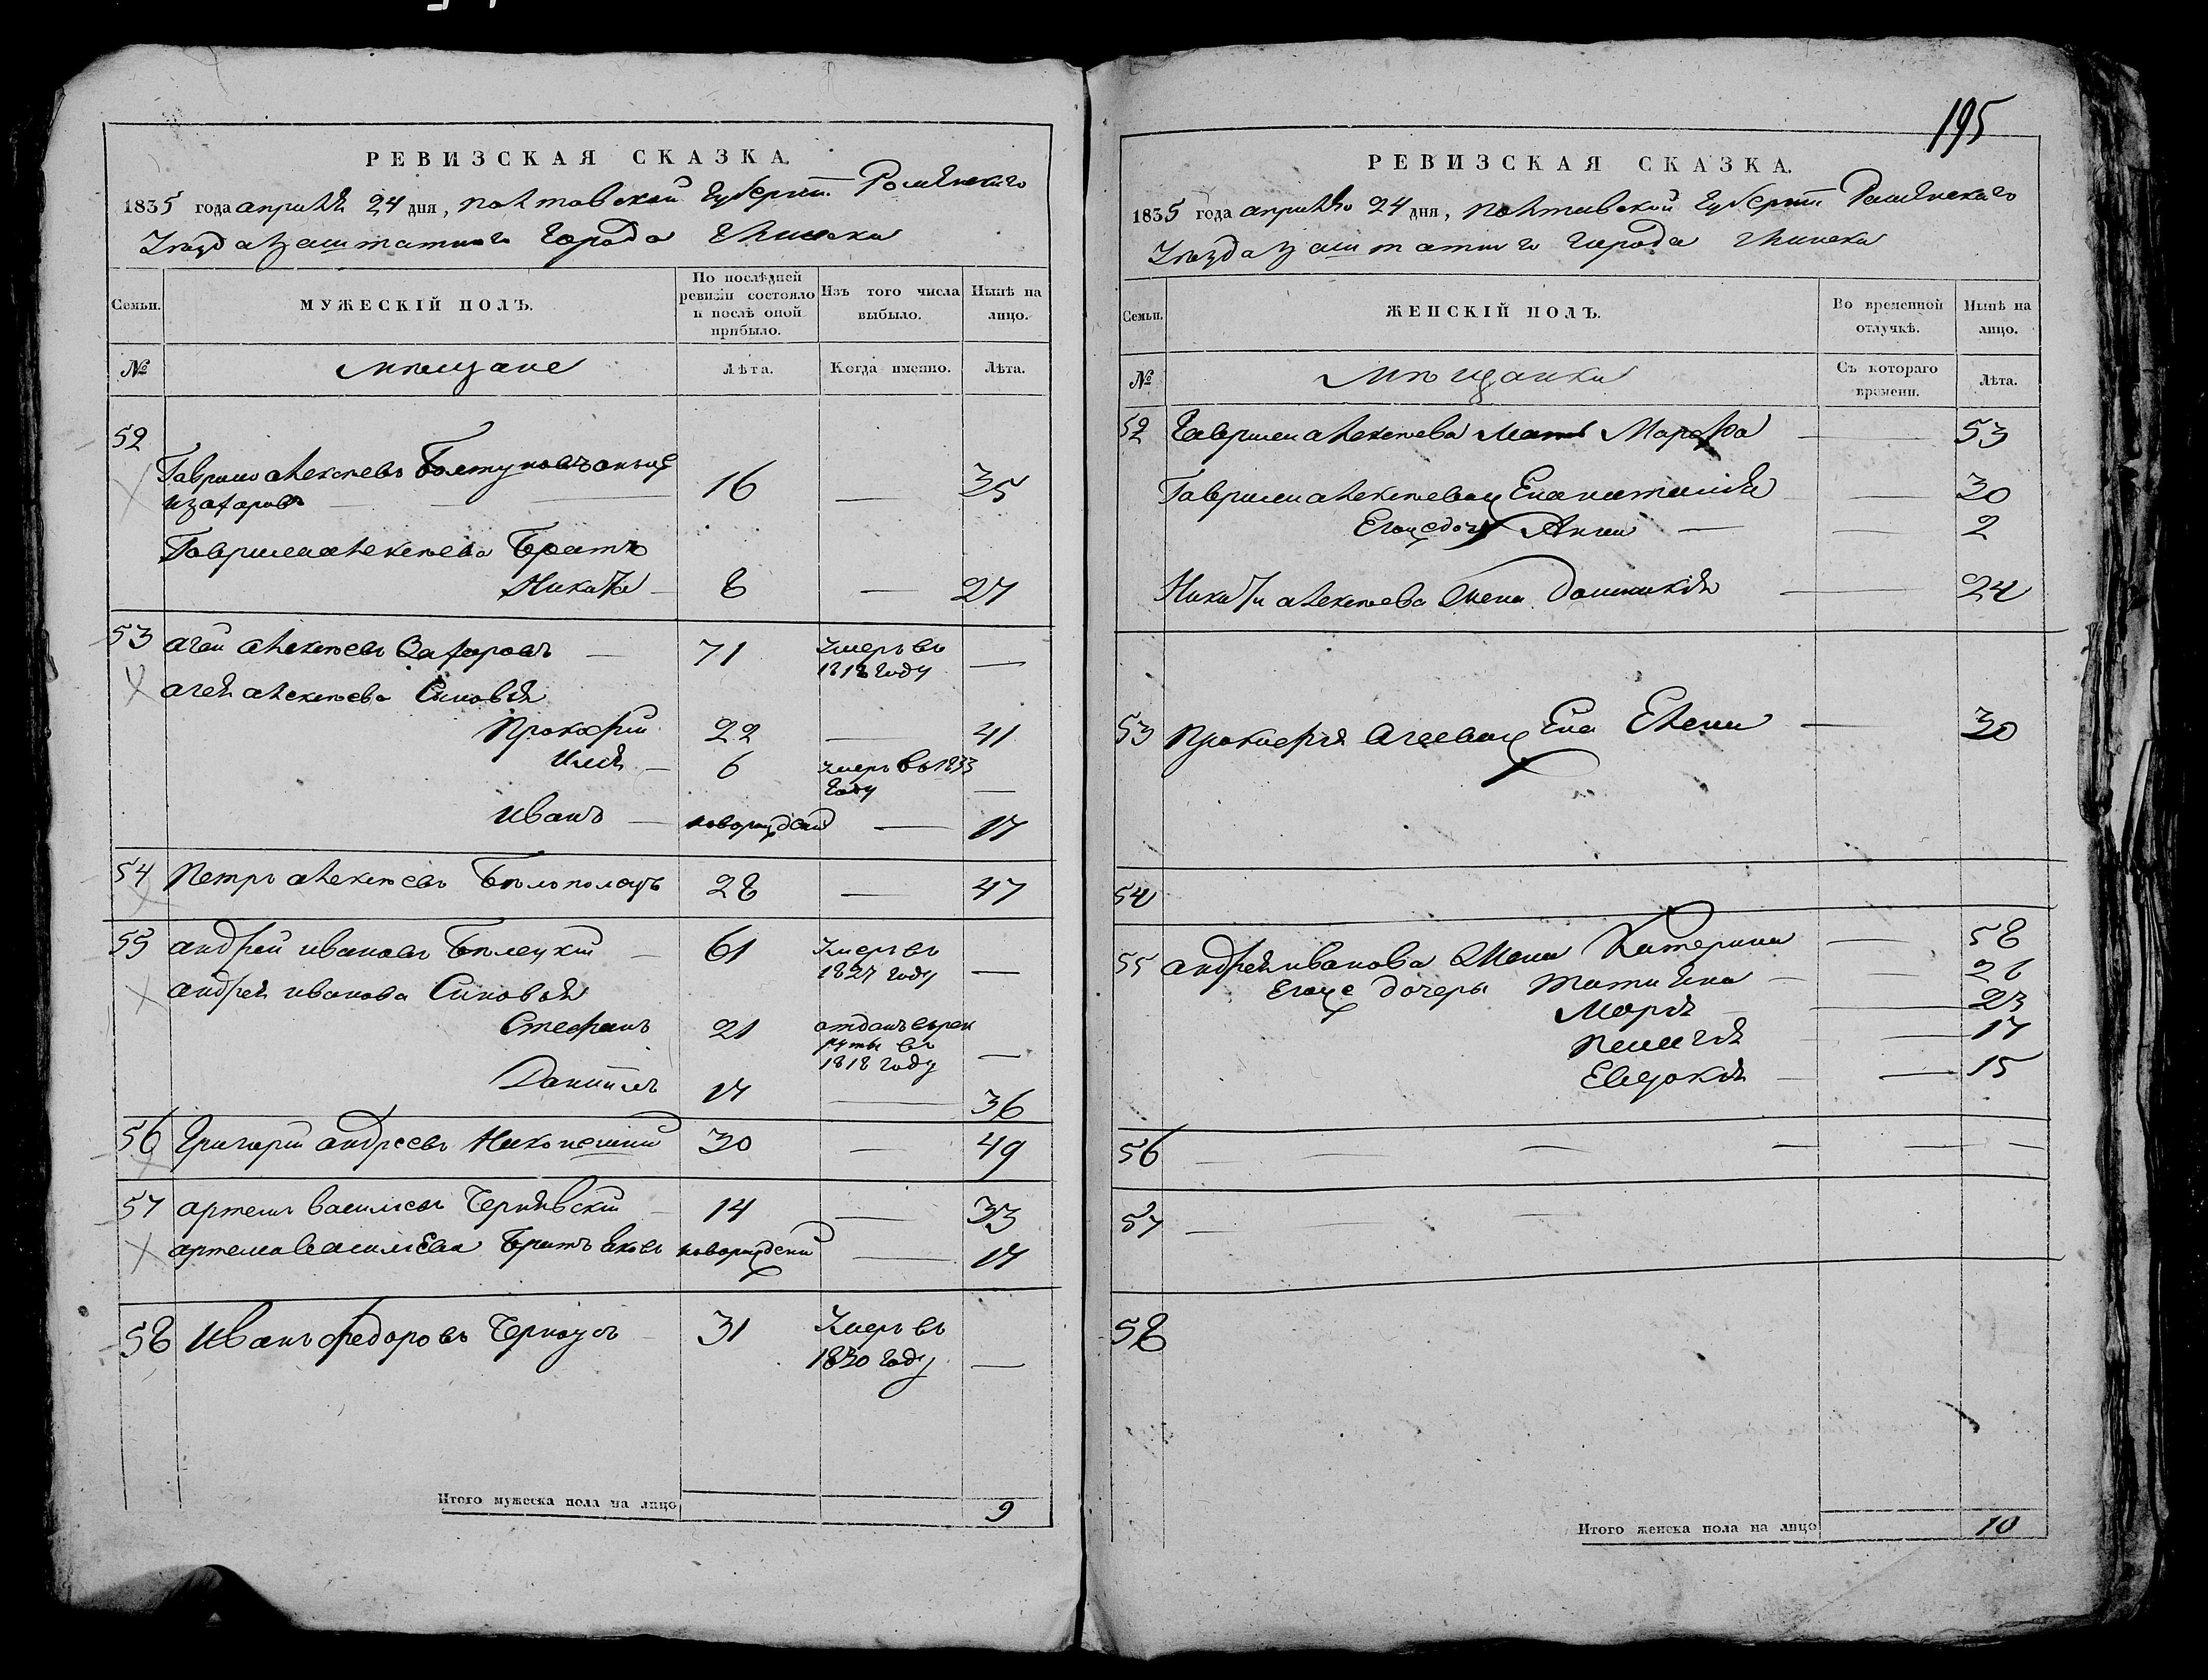 195
РЕВИЗСКАЯ СКАЗКА.
1835 года апрѣля 24 дня, полтавской губернии Роменского
уезда заштатного города Глинска
Семьи. МУЖЕСКІЙ ПОЛЪ. По послѣдней ревизіи состояло и послѣ оной прибыло. Изъ того числа выбыло. Нынѣ на лицо.
№ мещане Лѣта. Когда именно. Лѣта.
52
Гаврило алексеевъ
16 — 35
Гаврила алексеева Братъ
Никита — 8 — 27
53 агей алексеевъ Захаровъ — 71 умеръ въ 1818 году —
агея алексеева Сыновья
Прокофий 22 — 41
Илья — 6 умеръ въ 1833 году —
Иванъ — новорожденый — 17
54 Петръ алексеевъ Белополецъ 28 — 47
55 андрей ивановъ Белецкий — 61 умеръ въ 1827 году —
андрея иванова Сыновья
Стефанъ 21 отданъ въ рекруты въ 1818 году —
Даниилъ 17 — 36
56 Григорий андреевъ 30 — 49
57 артемъ васильевъ Чернявский — 14 — 33
артема васильева Братъ Яковъ новорожденый — 17
58 Иванъ федоровъ Черноусъ — 31 Умеръ въ 1830 году —
Итого мужеска пола на лицо 9
РЕВИЗСКАЯ СКАЗКА.
1835 года апрѣля 24 дня, полтавской губернии Роменского
уезда заштатного города Глинска
Семьи. ЖЕНСКІЙ ПОЛЪ. Во временной отлучкѣ. Нынѣ на лицо.
№ мещанки Съ котораго времени. Лѣта.
52 Гаврила алексеева мать Марфа — 53
Гаврила алексеева жена — 30
Егоже дочь Анна — — 2
Никиты алексеева жена Домникия — 24
53 Прокофия Агеева жена Елена — 30
54
55 андрея иванова жена Катерина — 58
Егоже дочеры Татияна — 26
Мария — 23
Пелагия — 17
Евдокия — 15
56 — — — — —
57 — — —
58
Итого женска пола на лицо 10